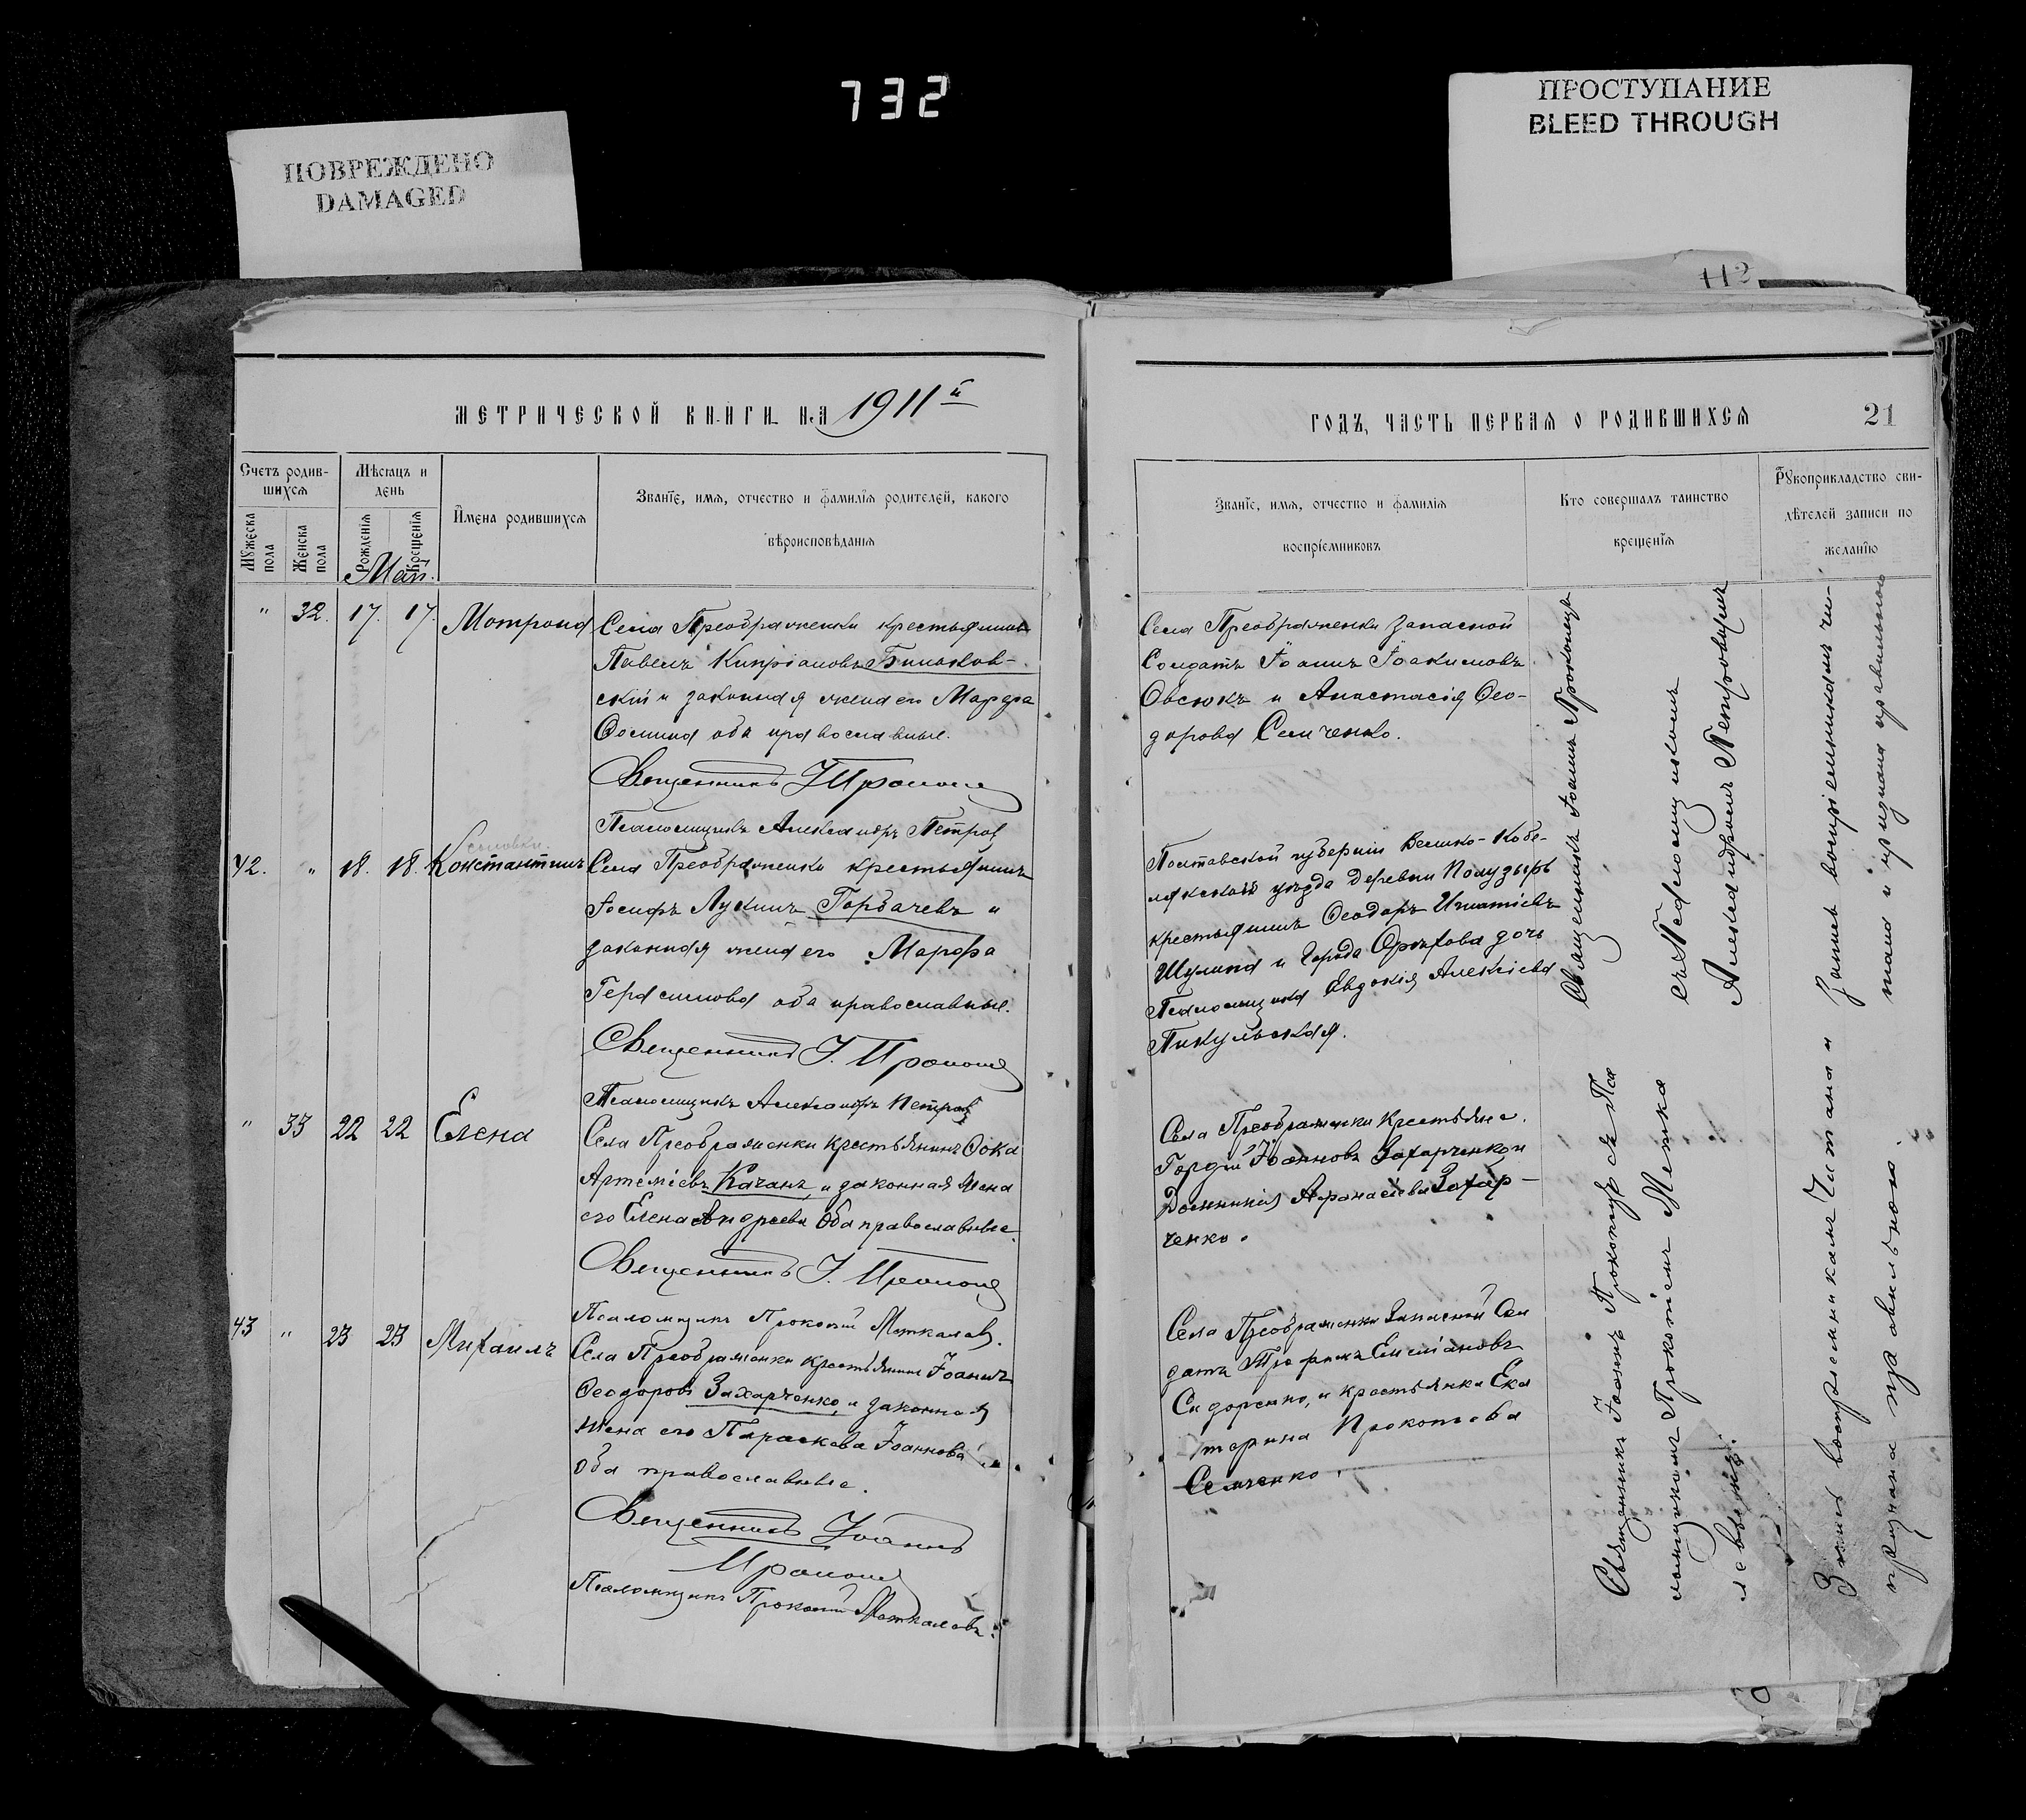 732
ПОВРЕЖДЕНО
DAMAGED
ПРОСТУПАНИЕ
BLEED THROUGH
112
МЕТРИЧЕСКОЙ КНИГИ НА 1911й
Счетъ родив-
шихся
Мужеска пола
Женска пола
Мѣсяцъ и
день
Рожденія
Крещенія
Май.
Имена родившихся
Званіе, имя, отчество и фамилія родителей, какого
вѣроисповѣданія
" 32. 17. 17. Мотрона
Села Преображенки крестьянинъ
Павелъ Кипріановъ
скій и законная жена его Марфа
Ѳомина оба православные.
Священникъ І
Псаломщикъ Александръ Петров
42. " 18. 18. Константинъ
Села Преображенки крестьянинъ
Іосифъ Лукинъ Горбачевъ и
законная жена его Марфа
Герасимова оба православные.
Священникъ І.
Псаломщикъ Александръ Петров
" 33 22 22 Елена
Села Преображенки крестьянинъ Ѳока
Артеміевъ Качанъ, и законная жена
его Елена Андреева оба православные.
Священникъ І.
Псаломщикъ Прокопій
43 " 23 23 Михаилъ
Села Преображенки крестьянинъ Іоаннъ
Ѳеодоровъ Захарченко, и законная
жена его Параскева Іоаннова
оба православные.
Священникъ Іоаннъ
Псаломщикъ Прокопій
ГОДЪ, ЧАСТЬ ПЕРВАЯ О РОДИВШИХСЯ
21
Званіе, имя, отчество и фамилія
воспріемниковъ
Кто совершалъ таинство
крещенія
Рукоприкладство сви-
дѣтелей записи по
желанію
Села Преображенки запасной
Солдатъ Іоаннъ Іоакимовъ
Овсюкъ и Анастасія Ѳео-
дорова Семченко.
Полтавской губерніи Велико-Кобе-
лякскаго уѣзда деревни
крестьянинъ Ѳеодоръ Игнатіевъ
Шулика и города Орѣхова дочь
Псаломщика Евдокія Алексіева
Пикульская.
Села Преображенки Крестьяне.
Гордій Іоанновъ Захарченко и
Домникія Афанасіева Захар-
ченко.
Села Преображенки Запасной Сол
датъ Трофимъ
Сидоренко, и крестьянка Ека
терина Прокопіева
Семченко.
Священникъ Іоаннъ
съ Псаломщикомъ
Александромъ Петровымъ
Священникъ Іоаннъ съ Пса
ломщикомъ Прокопіемъ
Запись воспріемникамъ чи-
тана и признана правильною
Запись воспріемникамъ Читана и
признана правильною